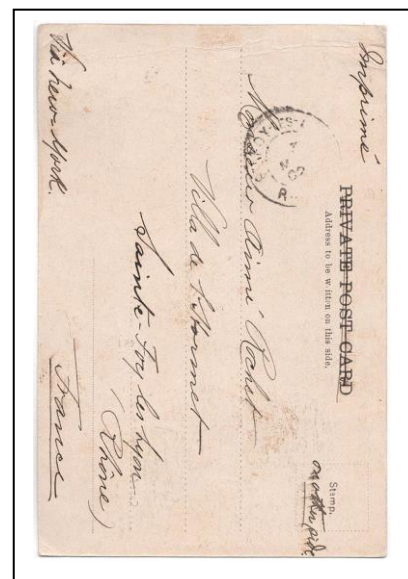 Imprimé
PRIVATE POST CARD
Address to be written on this side.
Stamp.
on other side
Monsieur Aimé Rochet
Villa de
Sainte-Foy les Lyon
(Rhône)
France
Via New-York.